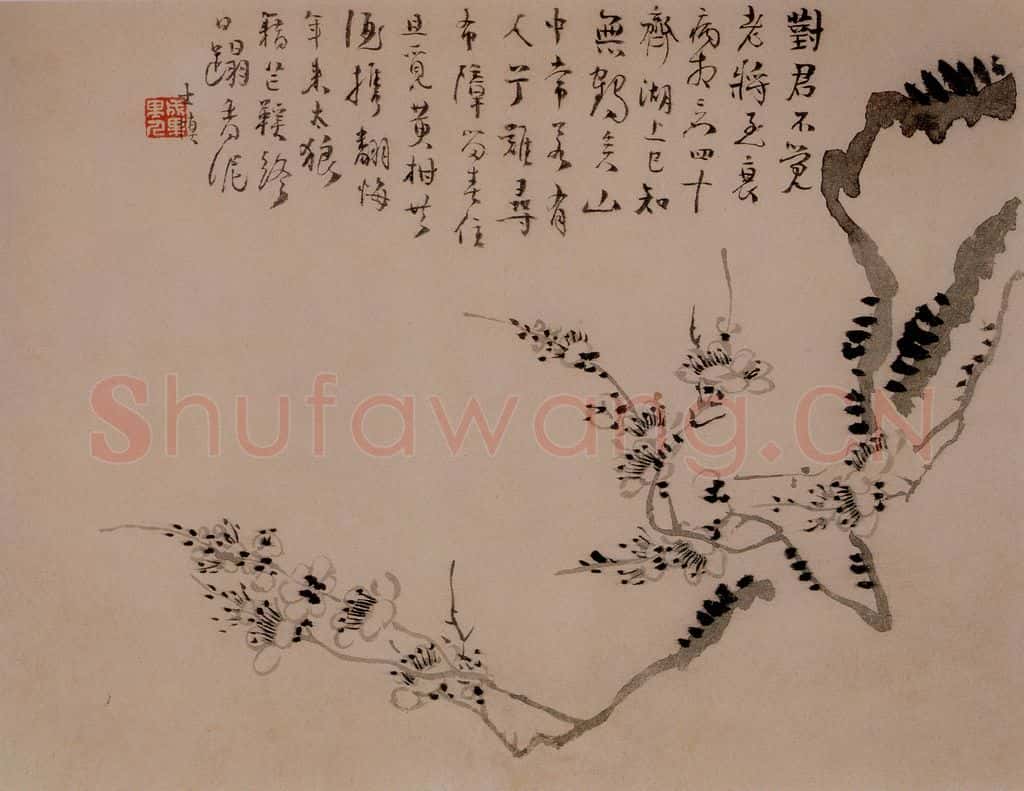 對君不覺
老將至衰
病四十
齊湖上已知
無鶴矣山
中常若有
人兮難尋
布障留春住
且覓黃柑共
酒攜翻悔
年來太狼
藉芒鞋終
日蹋青泥
士慎
Shufawang.CN